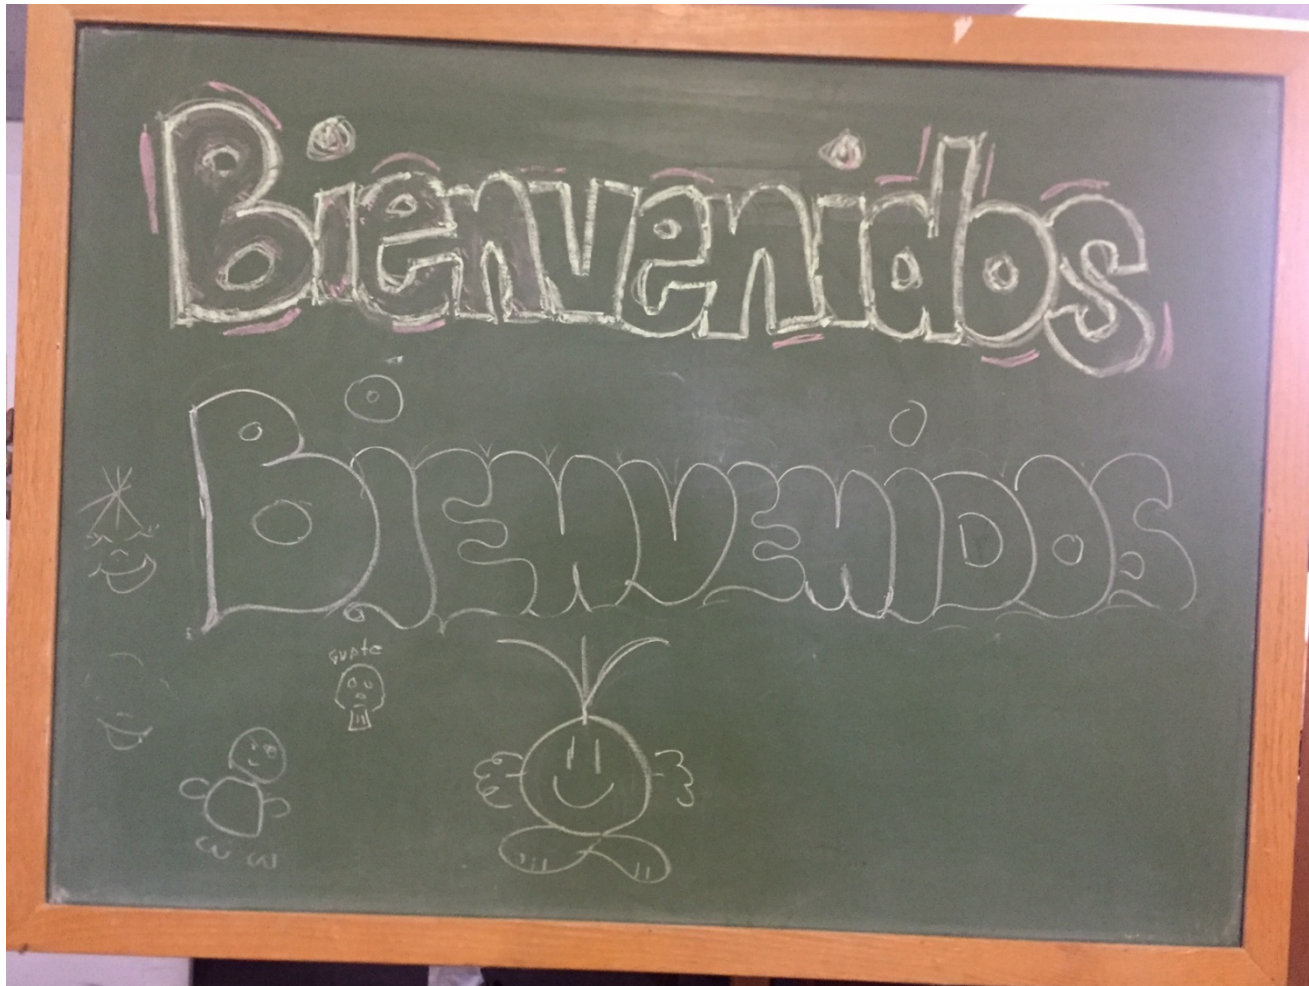 Bienvenidos
BIENVENIDOS